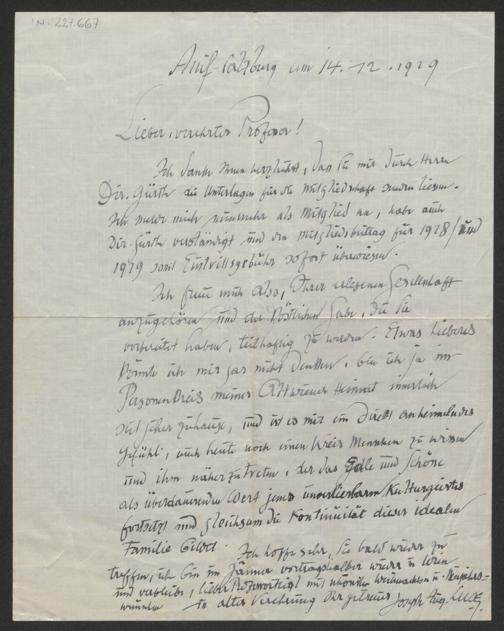 IN-227.667
Anif-Salzburg am 14.-12.1929
Lieber, verehrter Professor!
Ich danke Ihnen herzlichst, daß Sie mir durch Herrn
Dir. Gürth die Unterlagen für die Mitgliedschaft senden liesen.
Ich melde mich nunmehr als Mitglied an, habe auch
Dir. Gürth verständigt und den Mitgliedsbeitrag für 1928/und
1929 samt Eintrittsgebühr sofort überwiesen.
Ich freue mich also, Ihrer erlesenen Gesellschaft
anzugehören und der köstlichen Gabe, die Sie
vorbereitet haben, teilhaftig zu werden. Etwas Lieberes
könnte ich mir gar nicht denken, bin ich ja im
Personenkreis meiner Altwiener Heimat innerlich
seit jeher zuhause, und ist es mir ein direkt anheimelndes
Gefühl, auch heute noch einen Kreis Menschen zu wissen
und ihm näher zu treten, der das Edle und Schöne
als überdauernden Wert jenes unverlierbaren Kulturgeistes
fortsetzt und gleichsam die Kontinuität dieser idealen
Familie bildet. Ich hoffe sehr, Sie bald wieder zu
treffen, ich bin im Jänner vortragshalber wieder in Wien
und verbleibe, lieber Professor, mit schönsten Weihnachten u. Neujahrs-
wünschen in alter Verehrung Ihr getreuer Joseph Aug. Lux